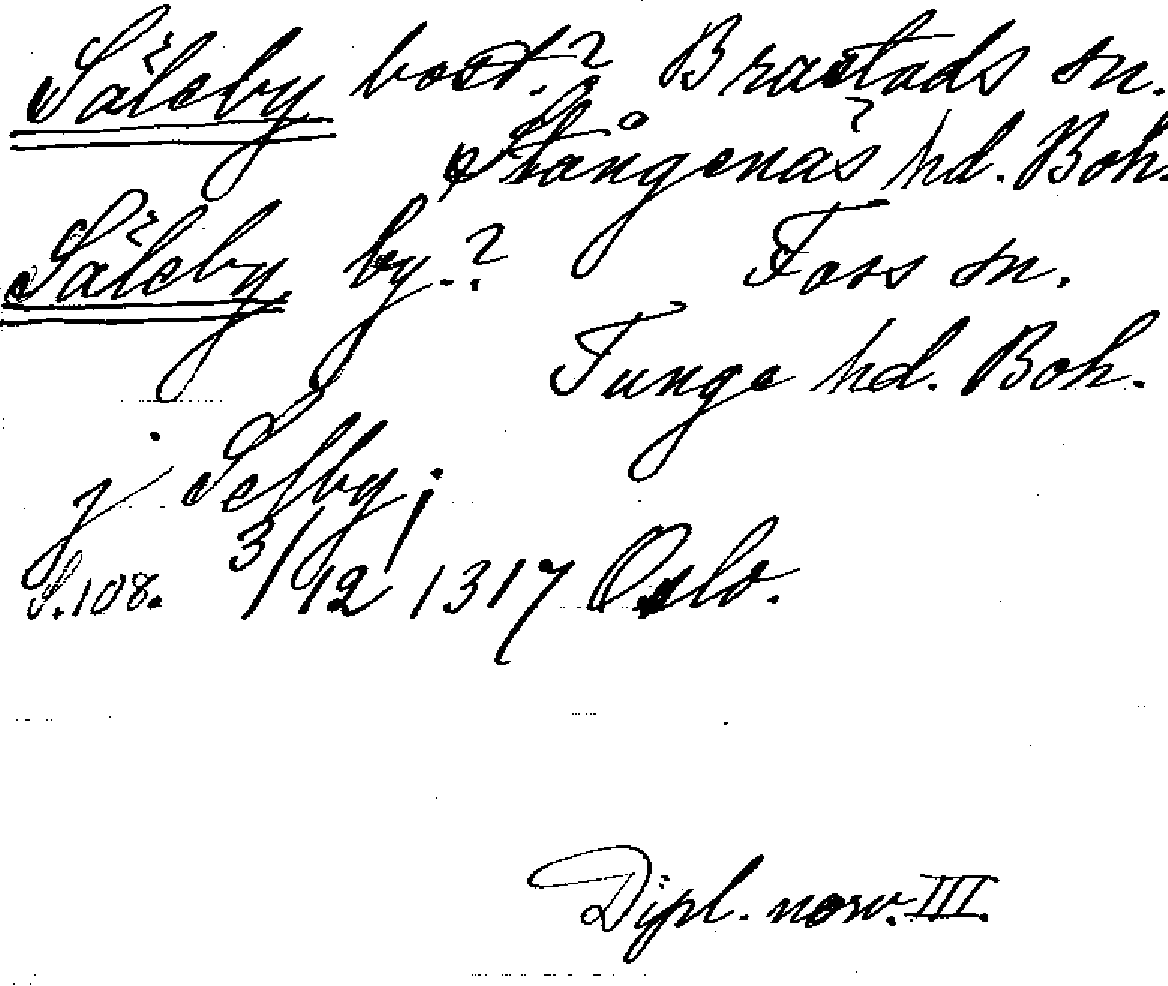 Säleby bost.? Brastads sn.
Stångenäs hd. Boh.
Säleby by.? Foss sn.
Tunge hd. Boh.
j Selby;
S.108. 3/12 1317 Oslo.
Dipl. norv. III.